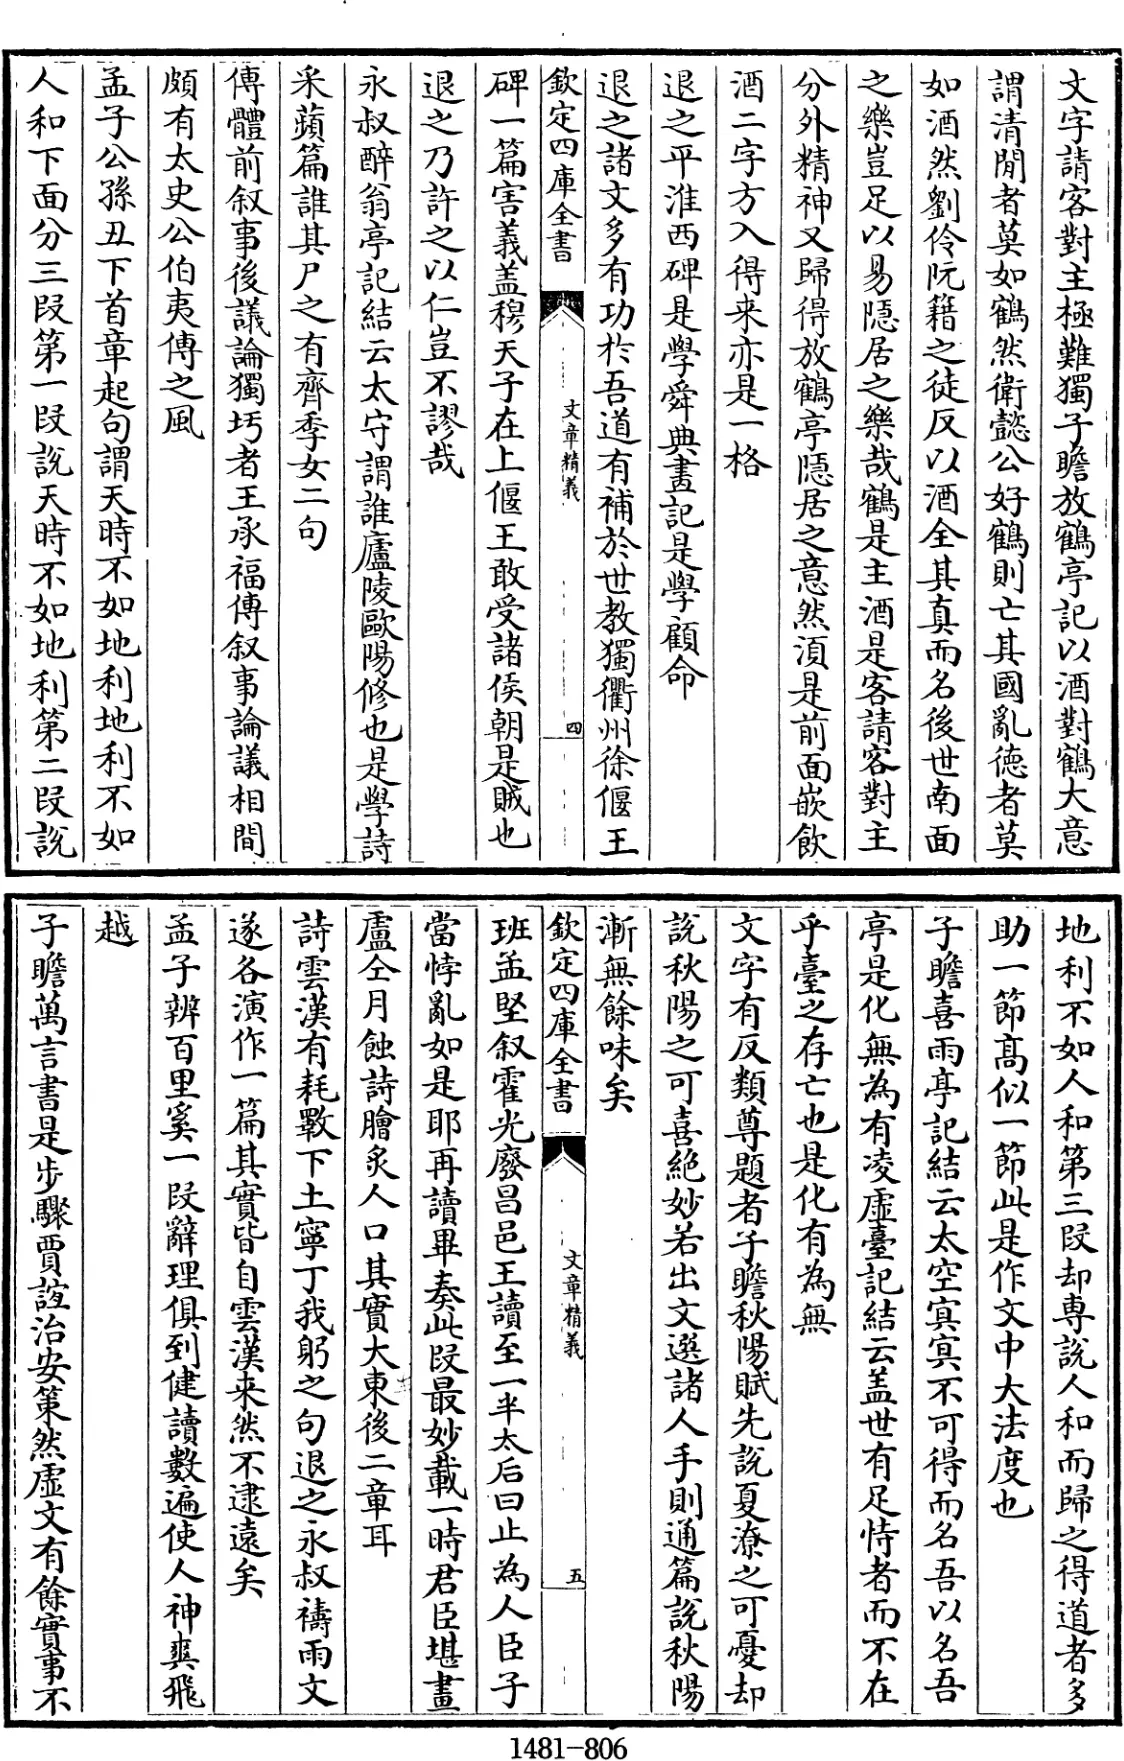 文字請客對主極難獨子瞻放鶴亭記以酒對鶴大意
謂清閒者莫如鶴然衛懿公好鶴則亡其國亂德者莫
如酒然劉伶阮籍之徒反以酒全其真而名後世南面
之樂豈足以易隱居之樂哉鶴是主酒是客請客對主
分外精神又歸得放鶴亭隱居之意然須是前面嵌飲
酒二字方入得来亦是一格
退之平淮西碑是學舜典畫記是學顧命
退之諸文多有功於吾道有補於世教獨衢州徐偃王
欽定四庫全書
文章精義
四
碑一篇害義盖穆天子在上偃王敢受諸侯朝是賊也
退之乃許之以仁豈不謬哉
永叔醉翁亭記結云太守謂誰廬陵歐陽修也是學詩
采蘋篇誰其尸之有齊季女二句
傳體前叙事後議論獨圬者王承福傳叙事論議相間
頗有太史公伯夷傳之風
孟子公孫丑下首章起句謂天時不如地利地利不如
人和下面分三段第一段說天時不如地利第二段說
地利不如人和第三段却専說人和而歸之得道者多
助一節高似一節此是作文中大法度也
子瞻喜雨亭記結云太空冥冥不可得而名吾以名吾
亭是化無為有凌虛臺記結云盖世有足恃者而不在
乎臺之存亡也是化有為無
文字有反類尊題者子瞻秋陽賦先說夏潦之可憂却
說秋陽之可喜絶妙若出文選諸人手則通篇說秋陽
漸無餘味矣
欽定四庫全書
文章精義
五
班孟堅叙霍光廢昌邑王讀至一半太后曰止為人臣子
當悖亂如是耶再讀畢奏此段最妙載一時君臣堪畫
盧仝月蝕詩膾炙人口其實大東後二章耳
詩雲漢有耗斁下土寧丁我躬之句退之永叔禱雨文
遂各演作一篇其實皆自雲漢来然不逮遠矣
孟子辨百里奚一段辭理俱到健讀數遍使人神爽飛
越
子瞻萬言書是步驟賈誼治安策然虛文有餘實事不
1481-806